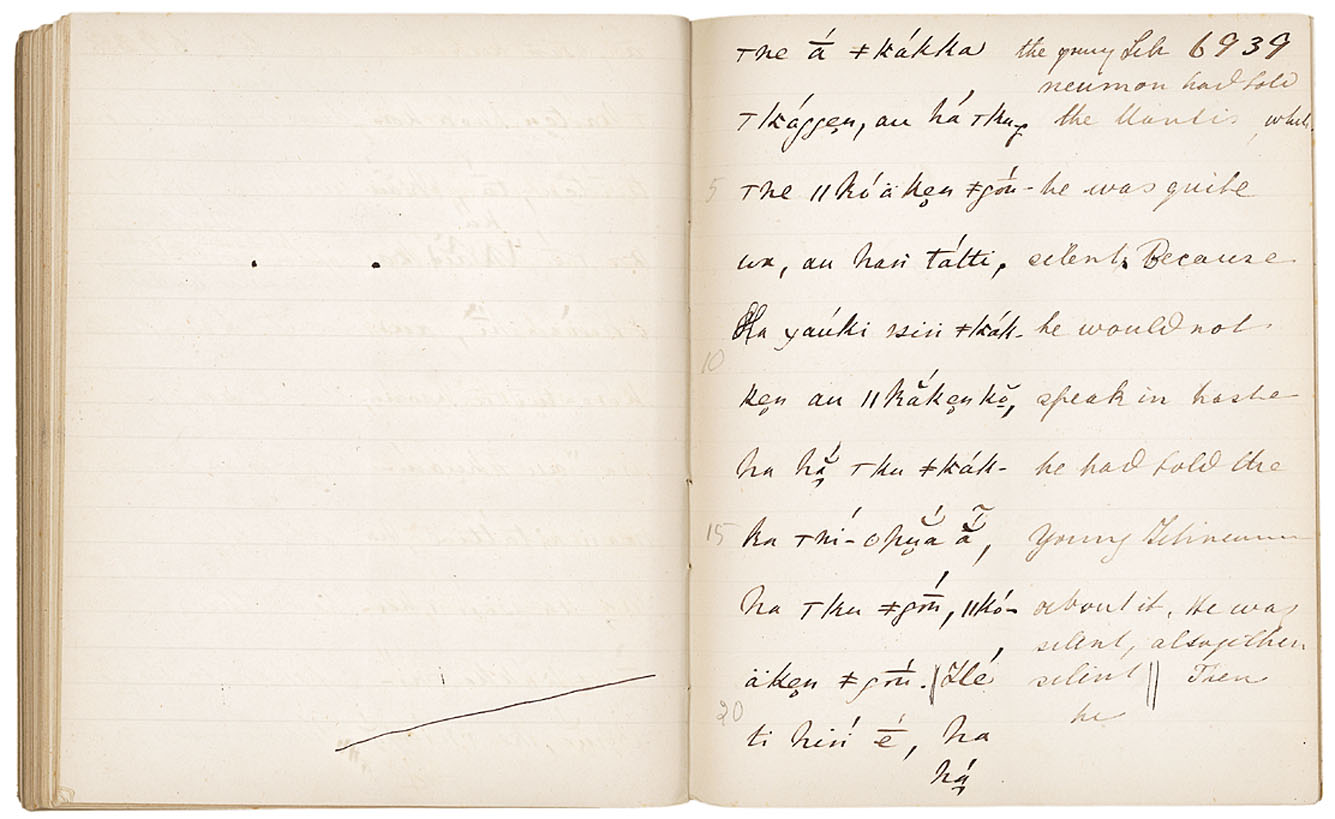 ꞇne ā́ ǂkákka the young Ich 6939
neumon had told
ꞇkággen̥, au há ꞇku the Mantis, which
5 ꞇne ǁkóäken̥ ǂgōń- he was quite
wa, au han tátti, silent. Because
Ha yaúki ssiń ǂkák- he would not
10
ken̥ au ǁkắken̥kŏ, speak in haste
ha hắ ꞇku ǂkák- he had told the
15 ka ꞇní-opŭá ắ, Young Ichneumon
ha ꞇku ǂgōń, ǁkó- about it, He was
silent, altogether
äken̥ ǂgōń. ǁ Hé silent ǁ Then
20 he
ti hiń ḗ, ha
há̤